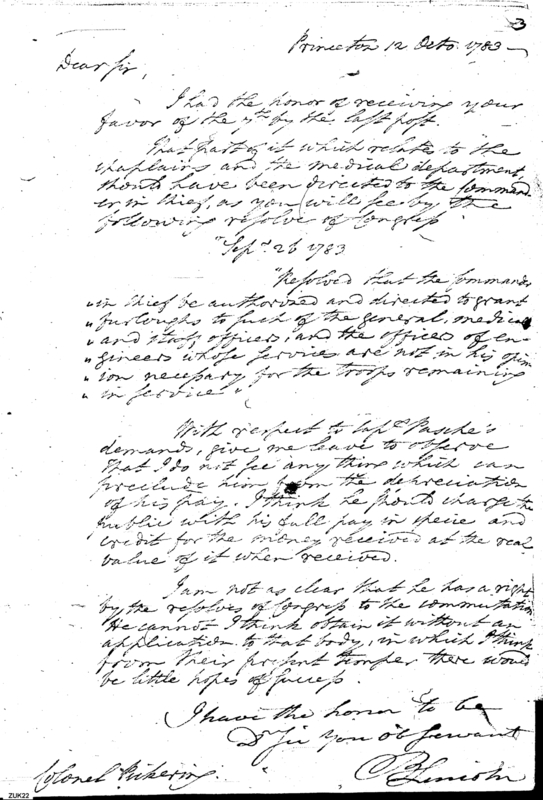 3
Princeton 12 Octo. 1783
Dear Sir,
I had the honor of receiving your
favor of the 7th by the last post.
That part of it which relate to the
chaplains and the medical department,
should have been directed to the Command
er in chief, as you will see by the
following resolve of Congress
"Sepr. 26 1783
"Resolved that the Commander
"in Chief be authorized and directed to grant
"furloughs to such of the general, medical
"and staff officers, and the officers of en-
"gineers whose services are not in his opin
"ion necessary for the troops remaining
"in service"
With respect to Capt. Pasche's
demands, give me leave to observe
that I do not see any thing which can
preclude him from the depreciation
of his pay. I think he should charge the
public with his full pay in specie and
credit for the money received at the real
value of it when received.
I am not as clear that he has a right
by the resolves of Congress to the commutation
He cannot I think obtain it without an
application to that body, in which I think
from their present temper, there would
be little hopes of success.
I have the honor to be
Dr Sir your obt servant
B Lincoln
Colonel Pickering
ZUK22